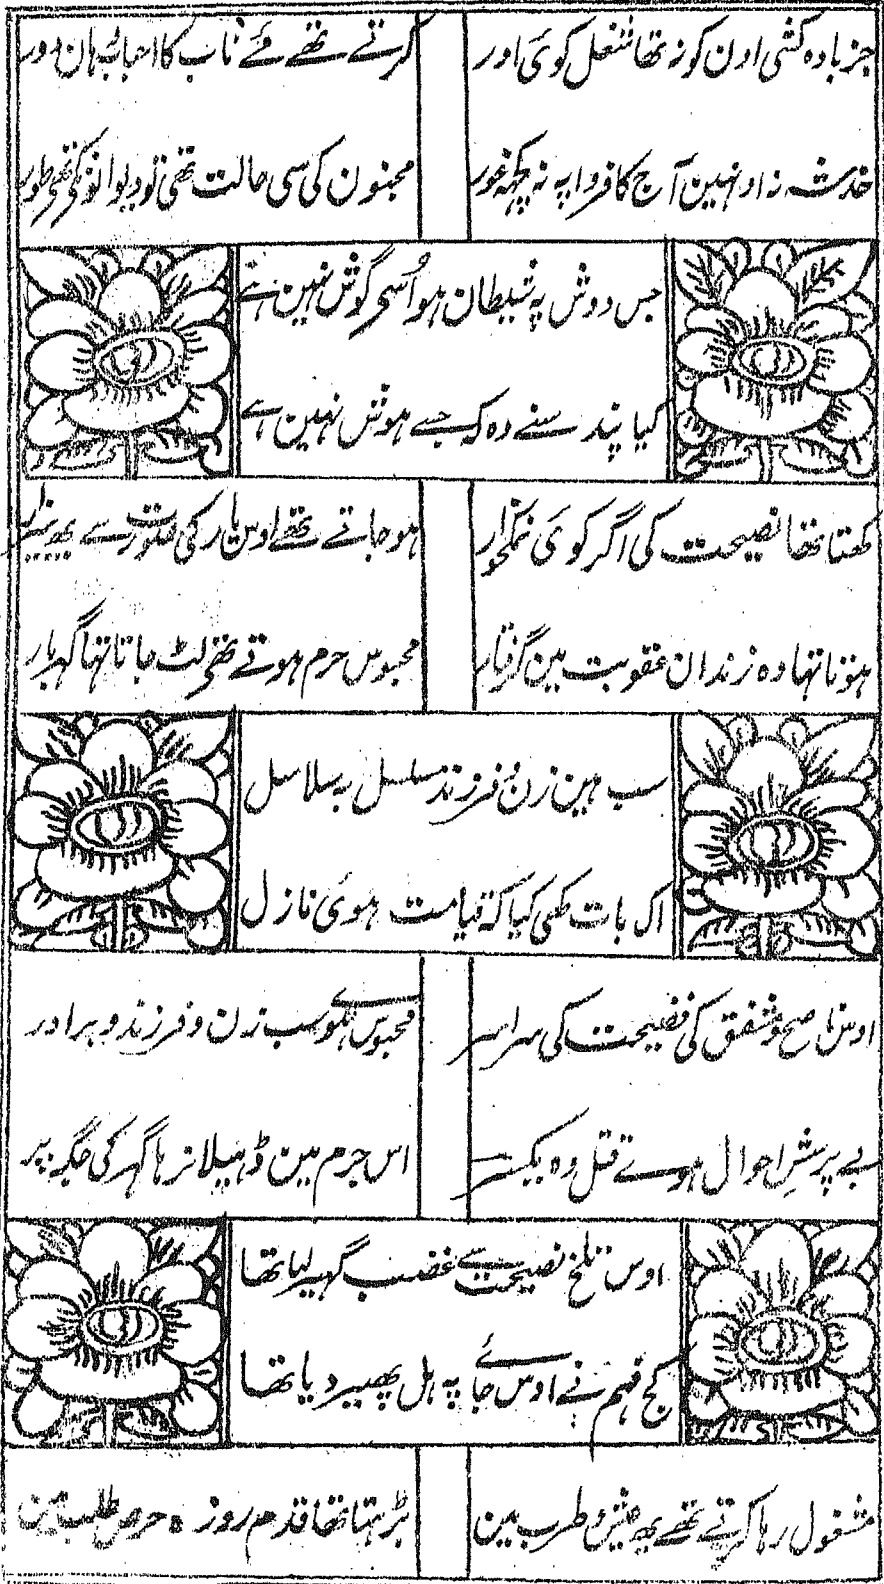 جز بادہ کشی اون کو نہ تھا شغل کوئی اور
کرتے تھے مئے ناب کا احباب ہان دور
خدشہ نہ اونہین آج کا فردا پہ نہ کچہہ غور
مجنون کی سی حالت تھی تو دیوانونکی تھی طور
جس دوش پہ شیطان ہو اُسی گوش نہین ہے
کیا پند سنے وہ کہ جسے ہوش نہین ہے
کھتا تھا نصیحت کی اگر کوئی نمکخوار
ہو جاتے تھے اوس یار کی صورت سے یہ بیزار
ہوتا تہا وہ زندان عقوبت مین گرفتار
محبوس حرم ہوتے تھی لٹ جاتا تہا گہر بار
سب ہین زن و فرزند مسلسل بہ سلاسل
اک بات کھی کیا کہ قیامت ہوئی نازل
اوس ناصح مشفق کی فضیحت کی سراسر
محبوس ہوئے سب زن و فرزند و برادر
بے پرسشِ احوال ہوے قتل وہ یکسر
اس جرم مین ڈہیلا نہ رہا گہر کی جگہ پر
اوس تلخ نصیحت سے غضب گہیر لیا تھا
کج فہم نے اوس جائے پہ ہل پھیر دیا تھا
مشغول رہا کرتے تھے یہ عیش و طرب مین
بڑہتا تھا قدم روز رہ حرص طلب مین